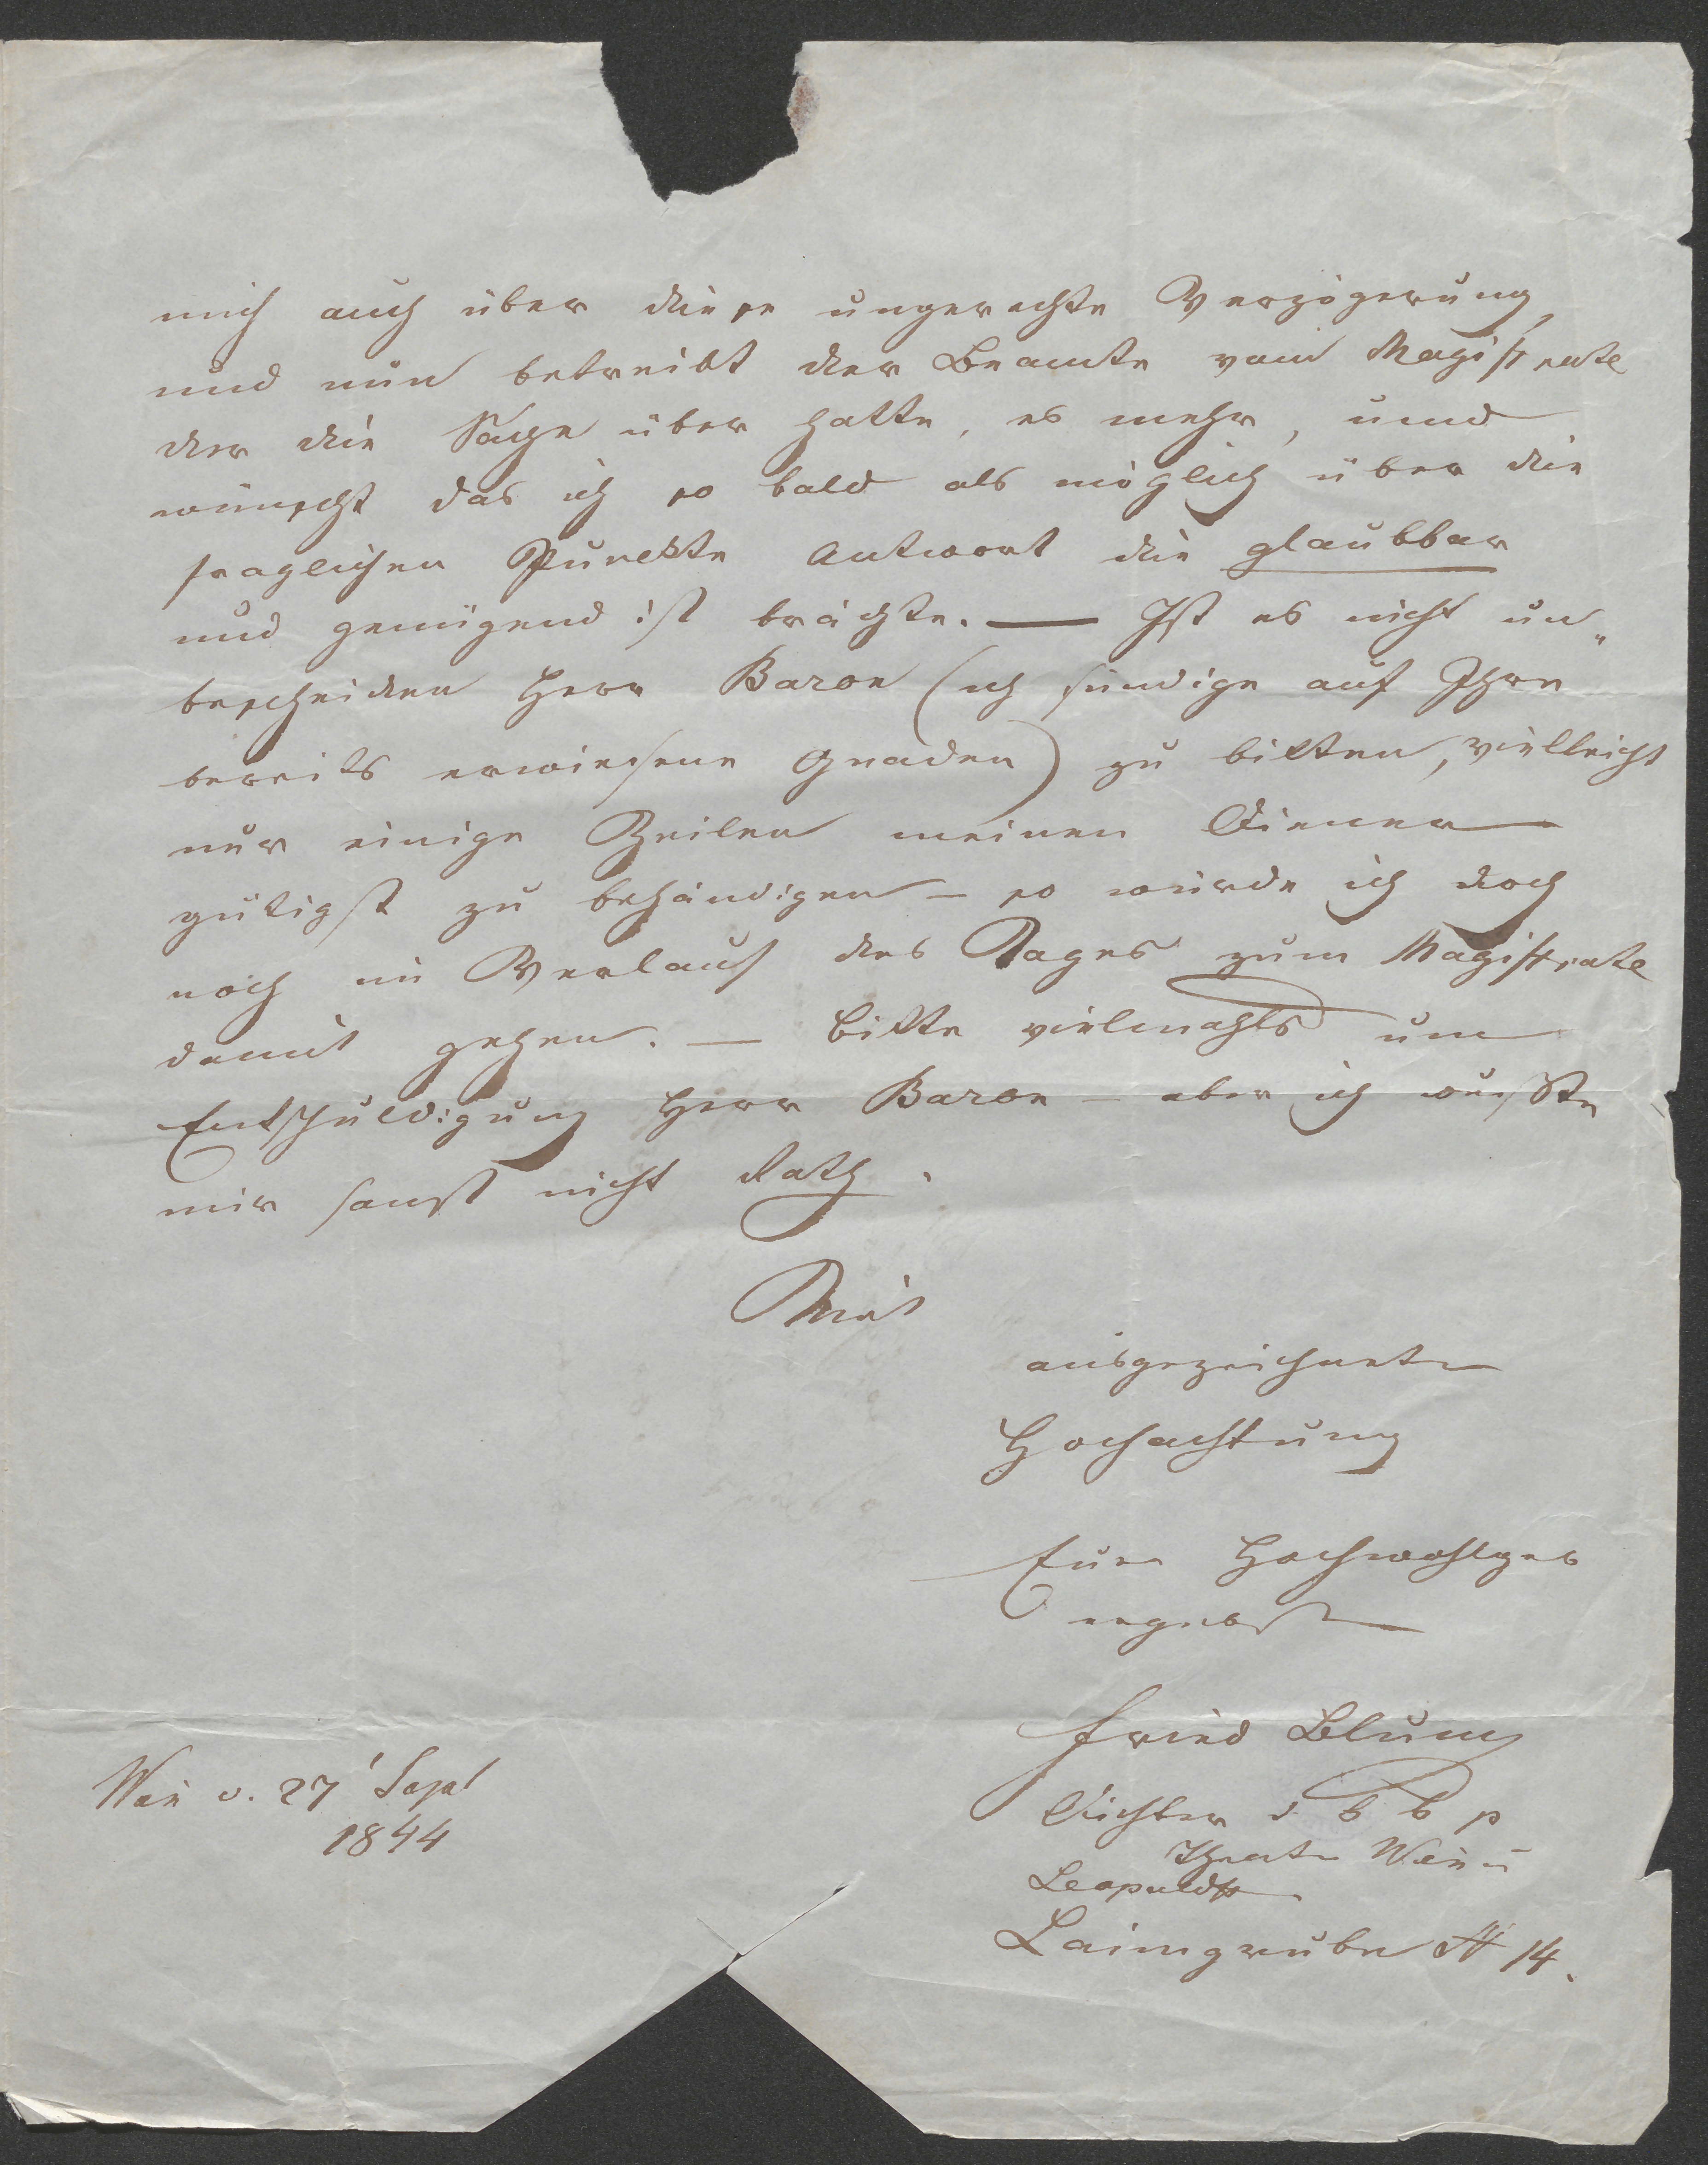 mich auch über diese ungerechte Verzögerung,
und nun betreibt der Beamte vom Magistrate
der die Sache über hatte, es mehr, und
wünscht das ich so bald als möglich über die
fraglichen Punckte Antwort die glaubbar
und genügend ist brächte. — Ist es nicht un„
bescheiden Herr Baron (ich sündige auf Ihre
bereits erwiesene Gnaden) zu bitten, vielleicht
nur einige Zeilen meinen Diener
gütigst zu behändigen – so würde ich doch
noch im Verlauf des Tages zum Magistrate
damit gehen. — Bitte vielmahls um
Entschuldigung Herr Baron – aber ich wußte
mir sonst nicht Rath.
Mit
ausgezeichneter
Hochachtung
Euer Hochwohlgeb
ergebst
Fried Blum
Dichter d b b p
Theater Wien u
Leopoldst
Laimgrube N 14.
Wien d. 27' Sept
1844